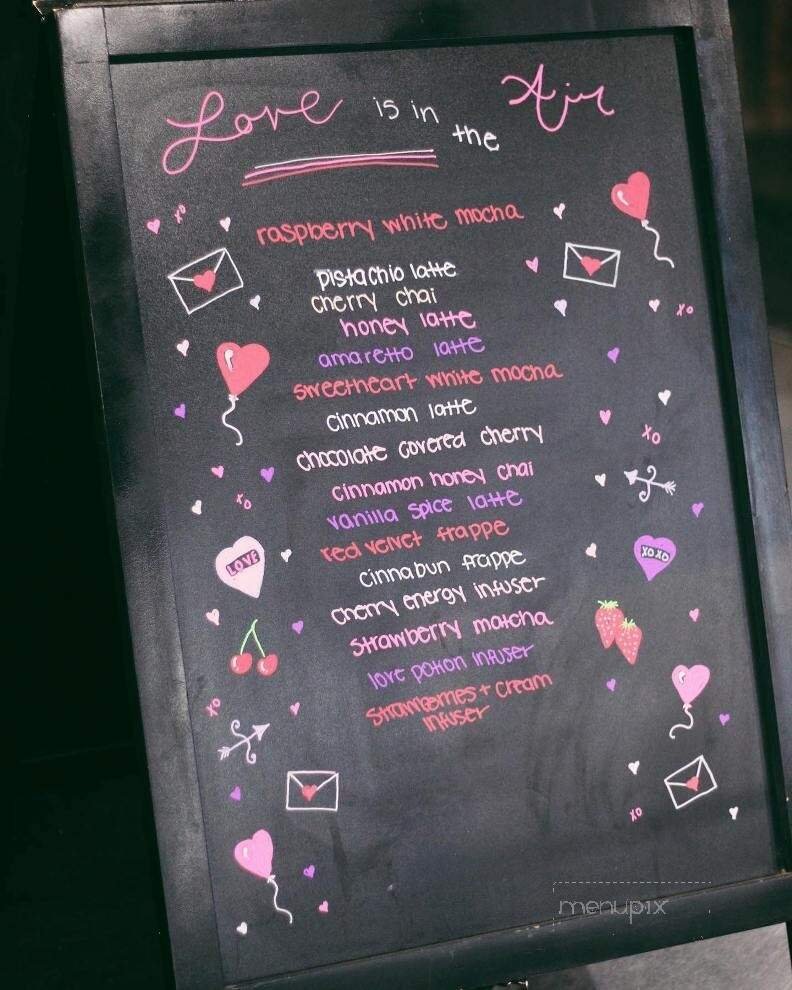 Love is in the Air
raspberry white mocha
pistachio latte
cherry chai
honey latte
amaretto latte
sweetheart white mocha
cinnamon latte
chocolate covered cherry
cinnamon honey chai
vanilla spice latte
red velvet frappe
cinnabun frappe
cherry energy infuser
strawberry matcha
love potion infuser
Strawberries + Cream
infuser
xo
xo
xo
xo
LOVE
XOXO
xo
xo
menupix